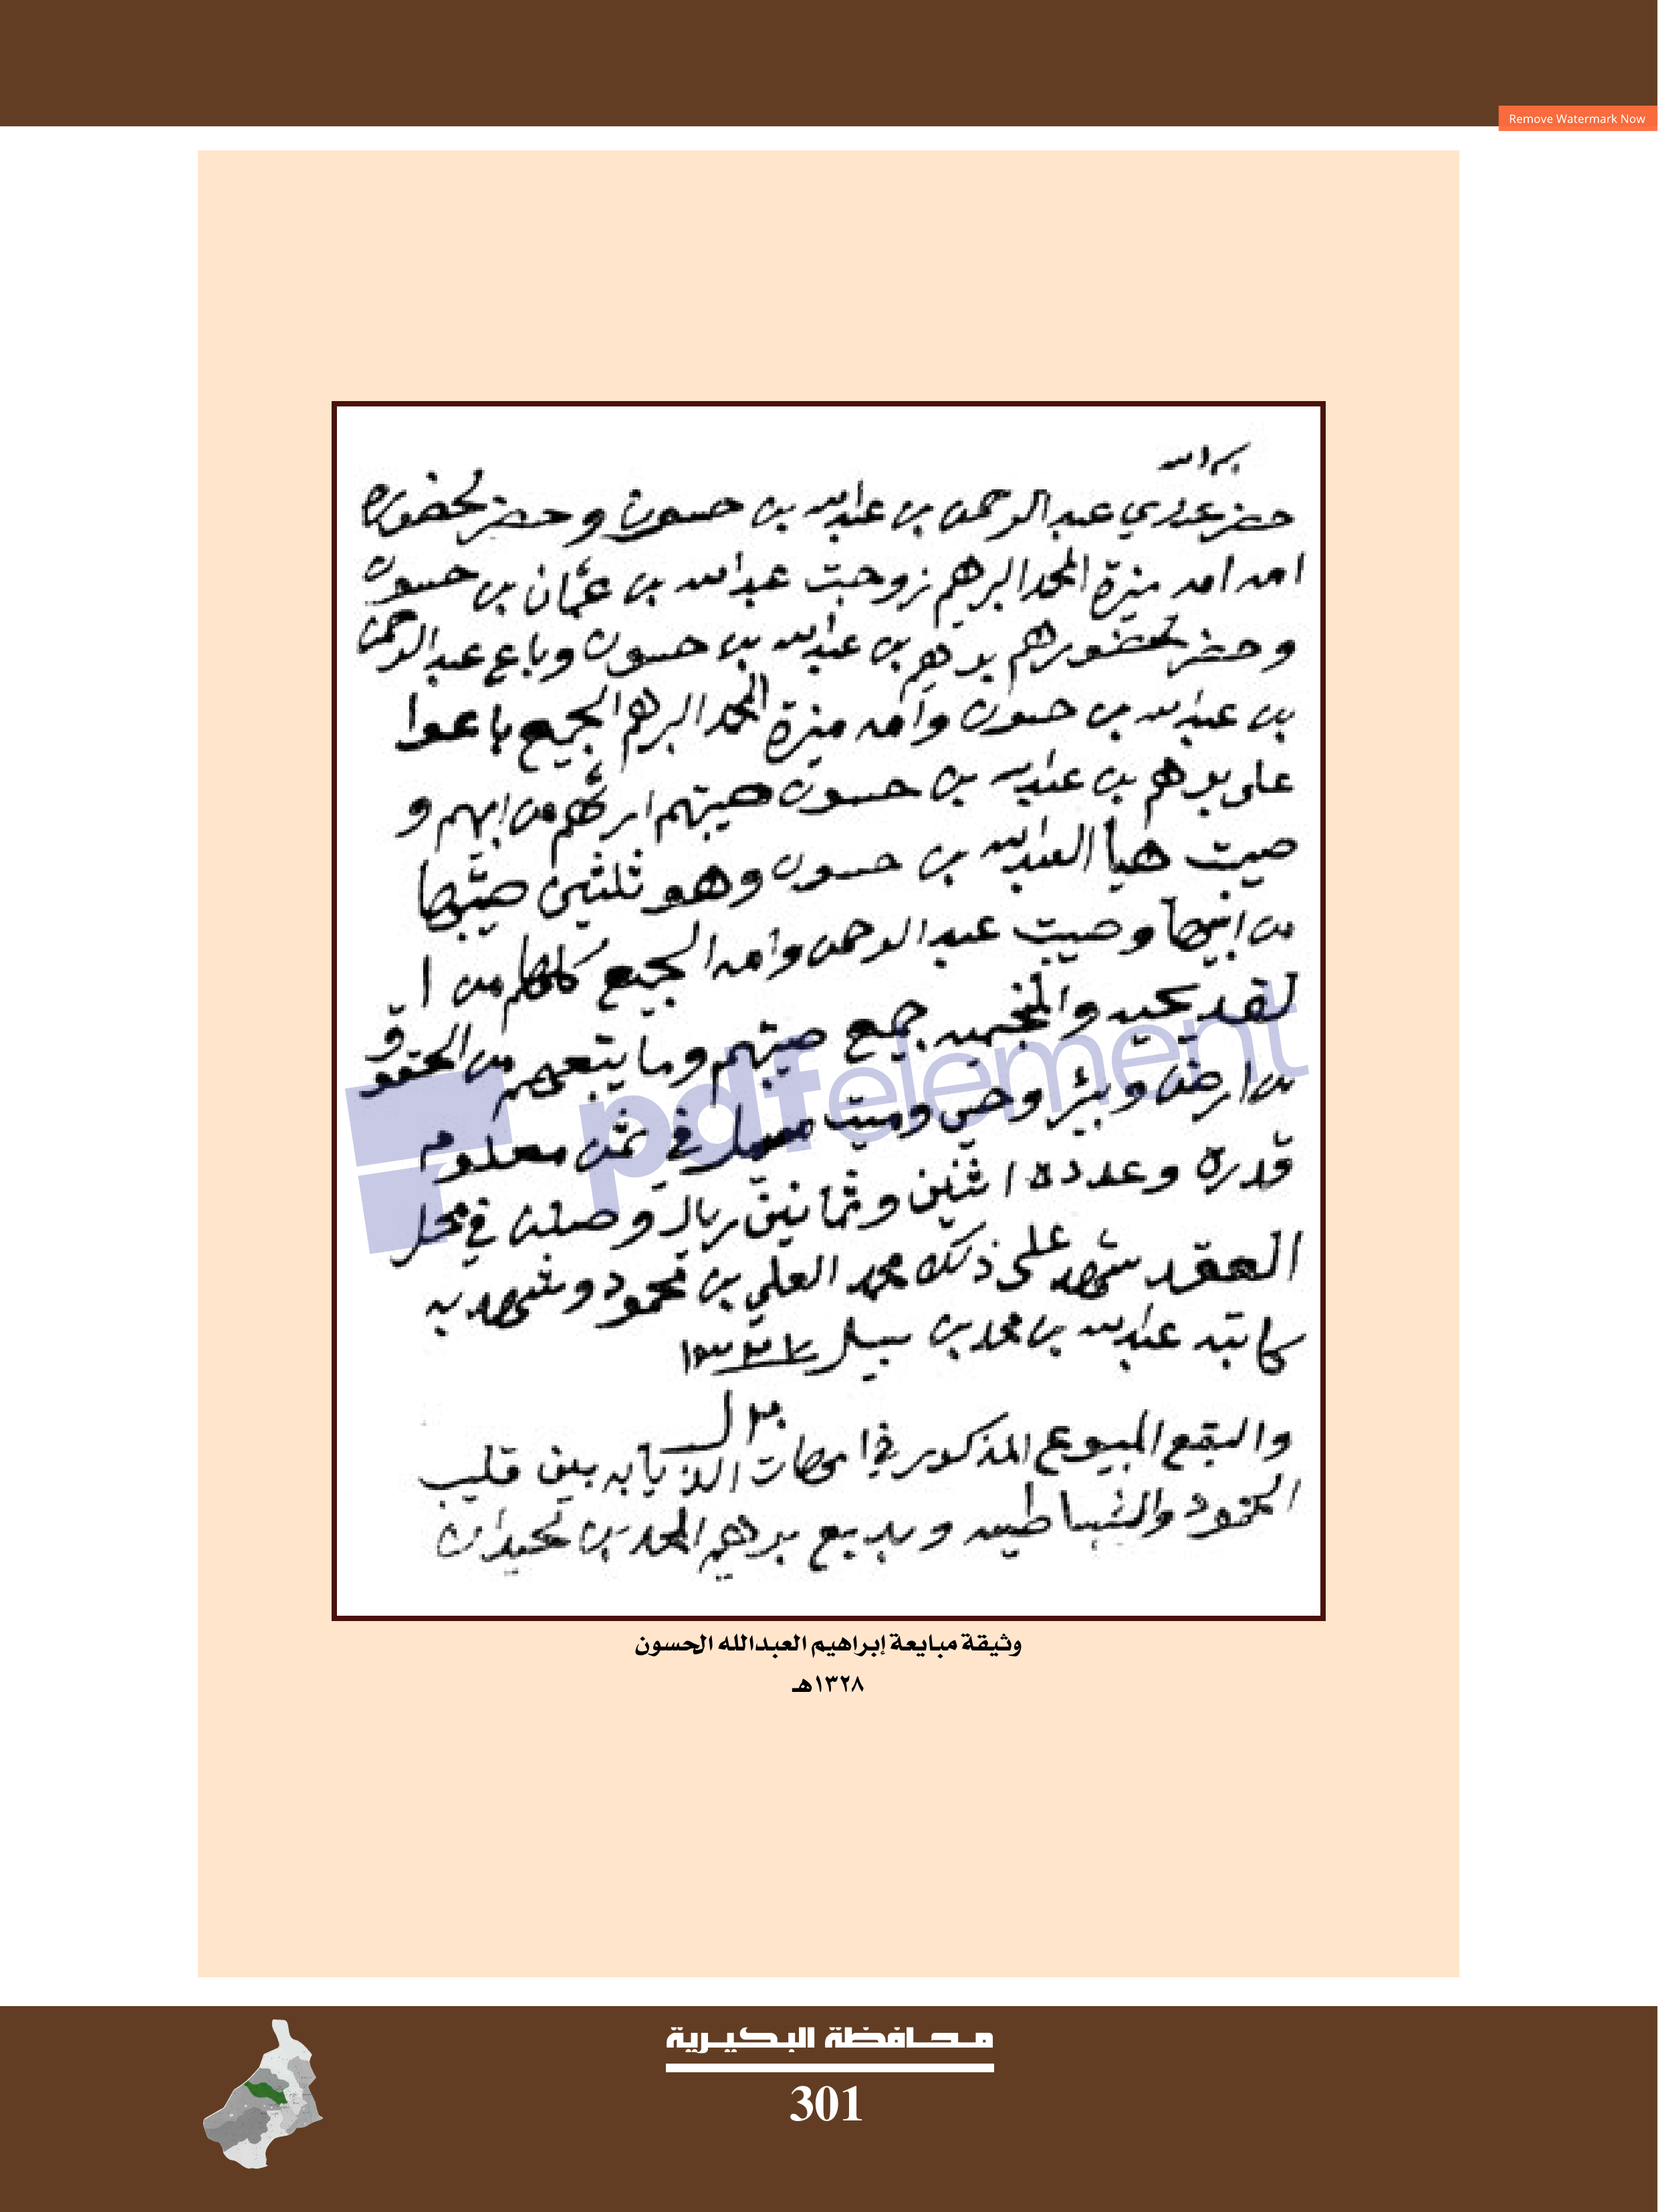 Remove Watermark Now
حضر عندي عبد الرحمن بن عبدالله بن حسون وحضر لحضوره
امه منيرة المحمد البرهيم زوجت عبدالله بن عثمان بن حسون
وحضر لحضورهم برهيم بن عبدالله بن حسون وباع عبدالرحمن
بن عبدالله بن حسون وامه منيرة المحمد البرهيم الجميع باعوا
على برهيم بن عبدالله بن حسون صيبتهم ارثهم من ابيهم و
صيبت هيا العبدالله بن حسون وهو ثلثين صيبتها
من ابيها وصيبت عبد الرحمن وامه الجميع كلهم من
جميع صيبتهم وما يتبعهم من الحقوق
من ارض وبئر وحي وميت في ثمن معلوم
قدره وعدده اثنين وثمانين ريال وصلن في محل
العقد شهد على ذلك محمد العلي بن محمود وشهد به
كاتبه عبدالله بن محمد بن سبيل
والبقع المبيوع المذكور في بين قليب
و برهيم المحمد بن
pdfelement
وثيقة مبايعة إبراهيم العبدالله الحسون
١٣٢٨هـ
محافظة البكيرية
301